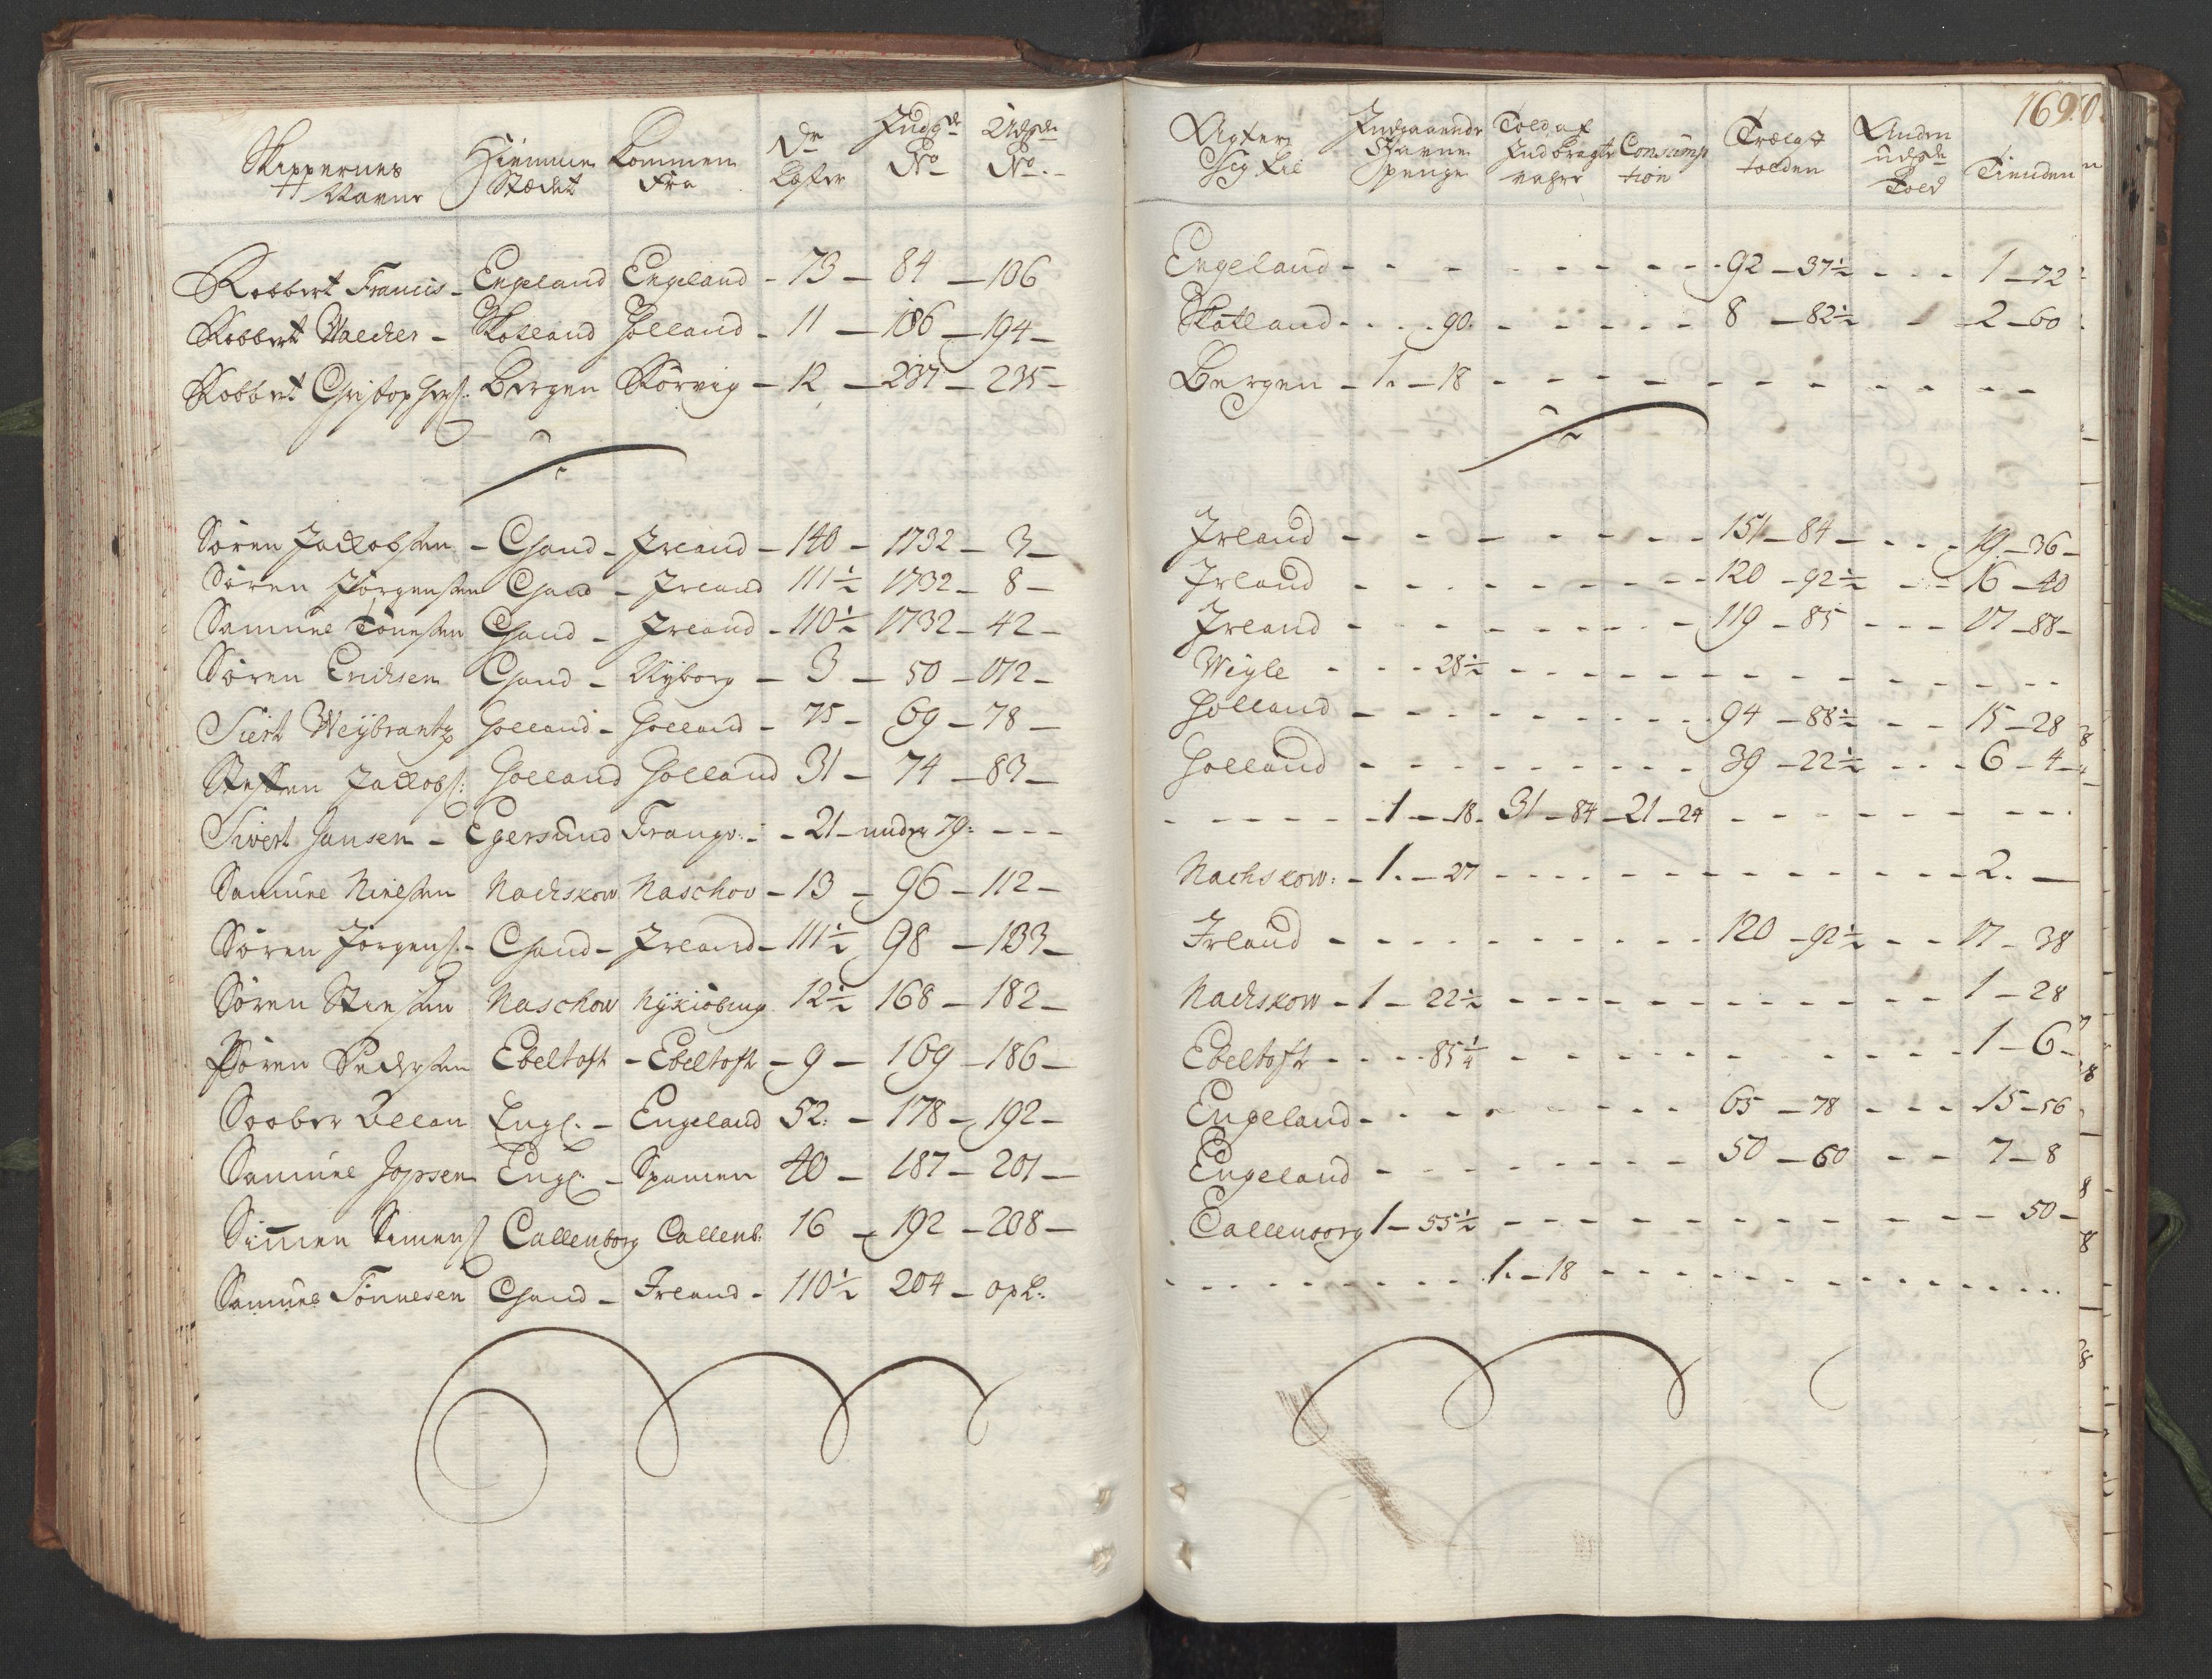 Skippernes Navne | Hiemme Stædet | Kommen Fra | Dr. Læster | Indgde No | Udgde No
Robbert Francis - Engeland Engeland - 73 - 84 - 106
Robbert Walcher - Skotland Holland - 11 - 186 - 194 -
Robbert Christophers: Bergen Körvig - 12 - 237 - 235 -
Sören Jackobsen - Chand - Irland - 140 - 1732 - 3 -
Sören Jörgensen Chand - Irland 111½ 1732 - 8 -
Samuel Tönesen Chand - Irland - 110½ 1732 - 42 -
Sören Erichsen Chand - Nyborg - 3 - 50 - 172 -
Siert Weybrantz Holland - Holland - 75 - 69 - 78 -
Steffen Jackobs: Holland Holland 31 - 74 - 83 -
Sivert Hansen - Egersund Frangr: - 21 - under 79: - - -
Samuel Nielsen Nachskow Naschov - 13 - 96 - 112 -
Sören Jörgens: - Chand - Irland - 111½ 98 - 133 -
Sören Stiesen Naschow Nykiöbing 12½ 168 - 182 -
Sören Pedersen Ebeltoft - Ebeltoft - 9 - 169 - 186 -
Engl: - Engeland 52: - 178 - 192 -
Samuel Jopsen Engl: - Spanien 40 - 187 - 201 -
Simen Simens: Callenborg Callenb: 16 - 192 - 208 -
Samuel Tönnesen Chand - Irland - 110½ 204 - opl:
169
Agter Sig til | Indgaaende Havne Penge | Told af Indbragte vahre | Consumption | Trælast tolden | Anden udgde Told | Tienden
Engeland - - - - - - - - 92 - 37½ - - - 1 - 72
Skotland - - - 90 - - - - - 8 - 82½ - 2 - 60
Bergen - 1. - 18 - - - - - - - - - -
Irland - - - - - - - 151 - 84 - - - - 19 - 36 -
Irland - - - - - - - - 120 - 92½ - - 16 - 40
Irland - - - - - - - - 119 - 85 - - - 17 - 88 -
Weyle - - - 28½ - - - - - - - - - - -
Holland - - - - - - - - - 94 - 88½ - - 15 - 28
Holland - - - - - - - - - 39 - 22½ - - - 6 - 4
- - - - - 1 - 18 - 31 - 84 - 21 - 24 - - - - - - -
Nachskow: - 1. - 27 - - - - - - - - - - - 2. -
Irland - - - - - - - - - 120 - 92½ - - 17 - 38
Nachskow - 1 - 22½ - - - - - - - - - - 1 - 28
Ebeltoft - - - - 85¼ - - - - - - - - 1 - 6 -
Engeland - - - - - - - - 65 - 78 - - - 15 - 56
Engeland - - - - - - - - 50 - 60 - - 7 - 8
Callenborg 1 - 55½ - - - - - - - - - - - 50 -
- - - - - - - - - 1. - 18 - - - - - - - - - - -